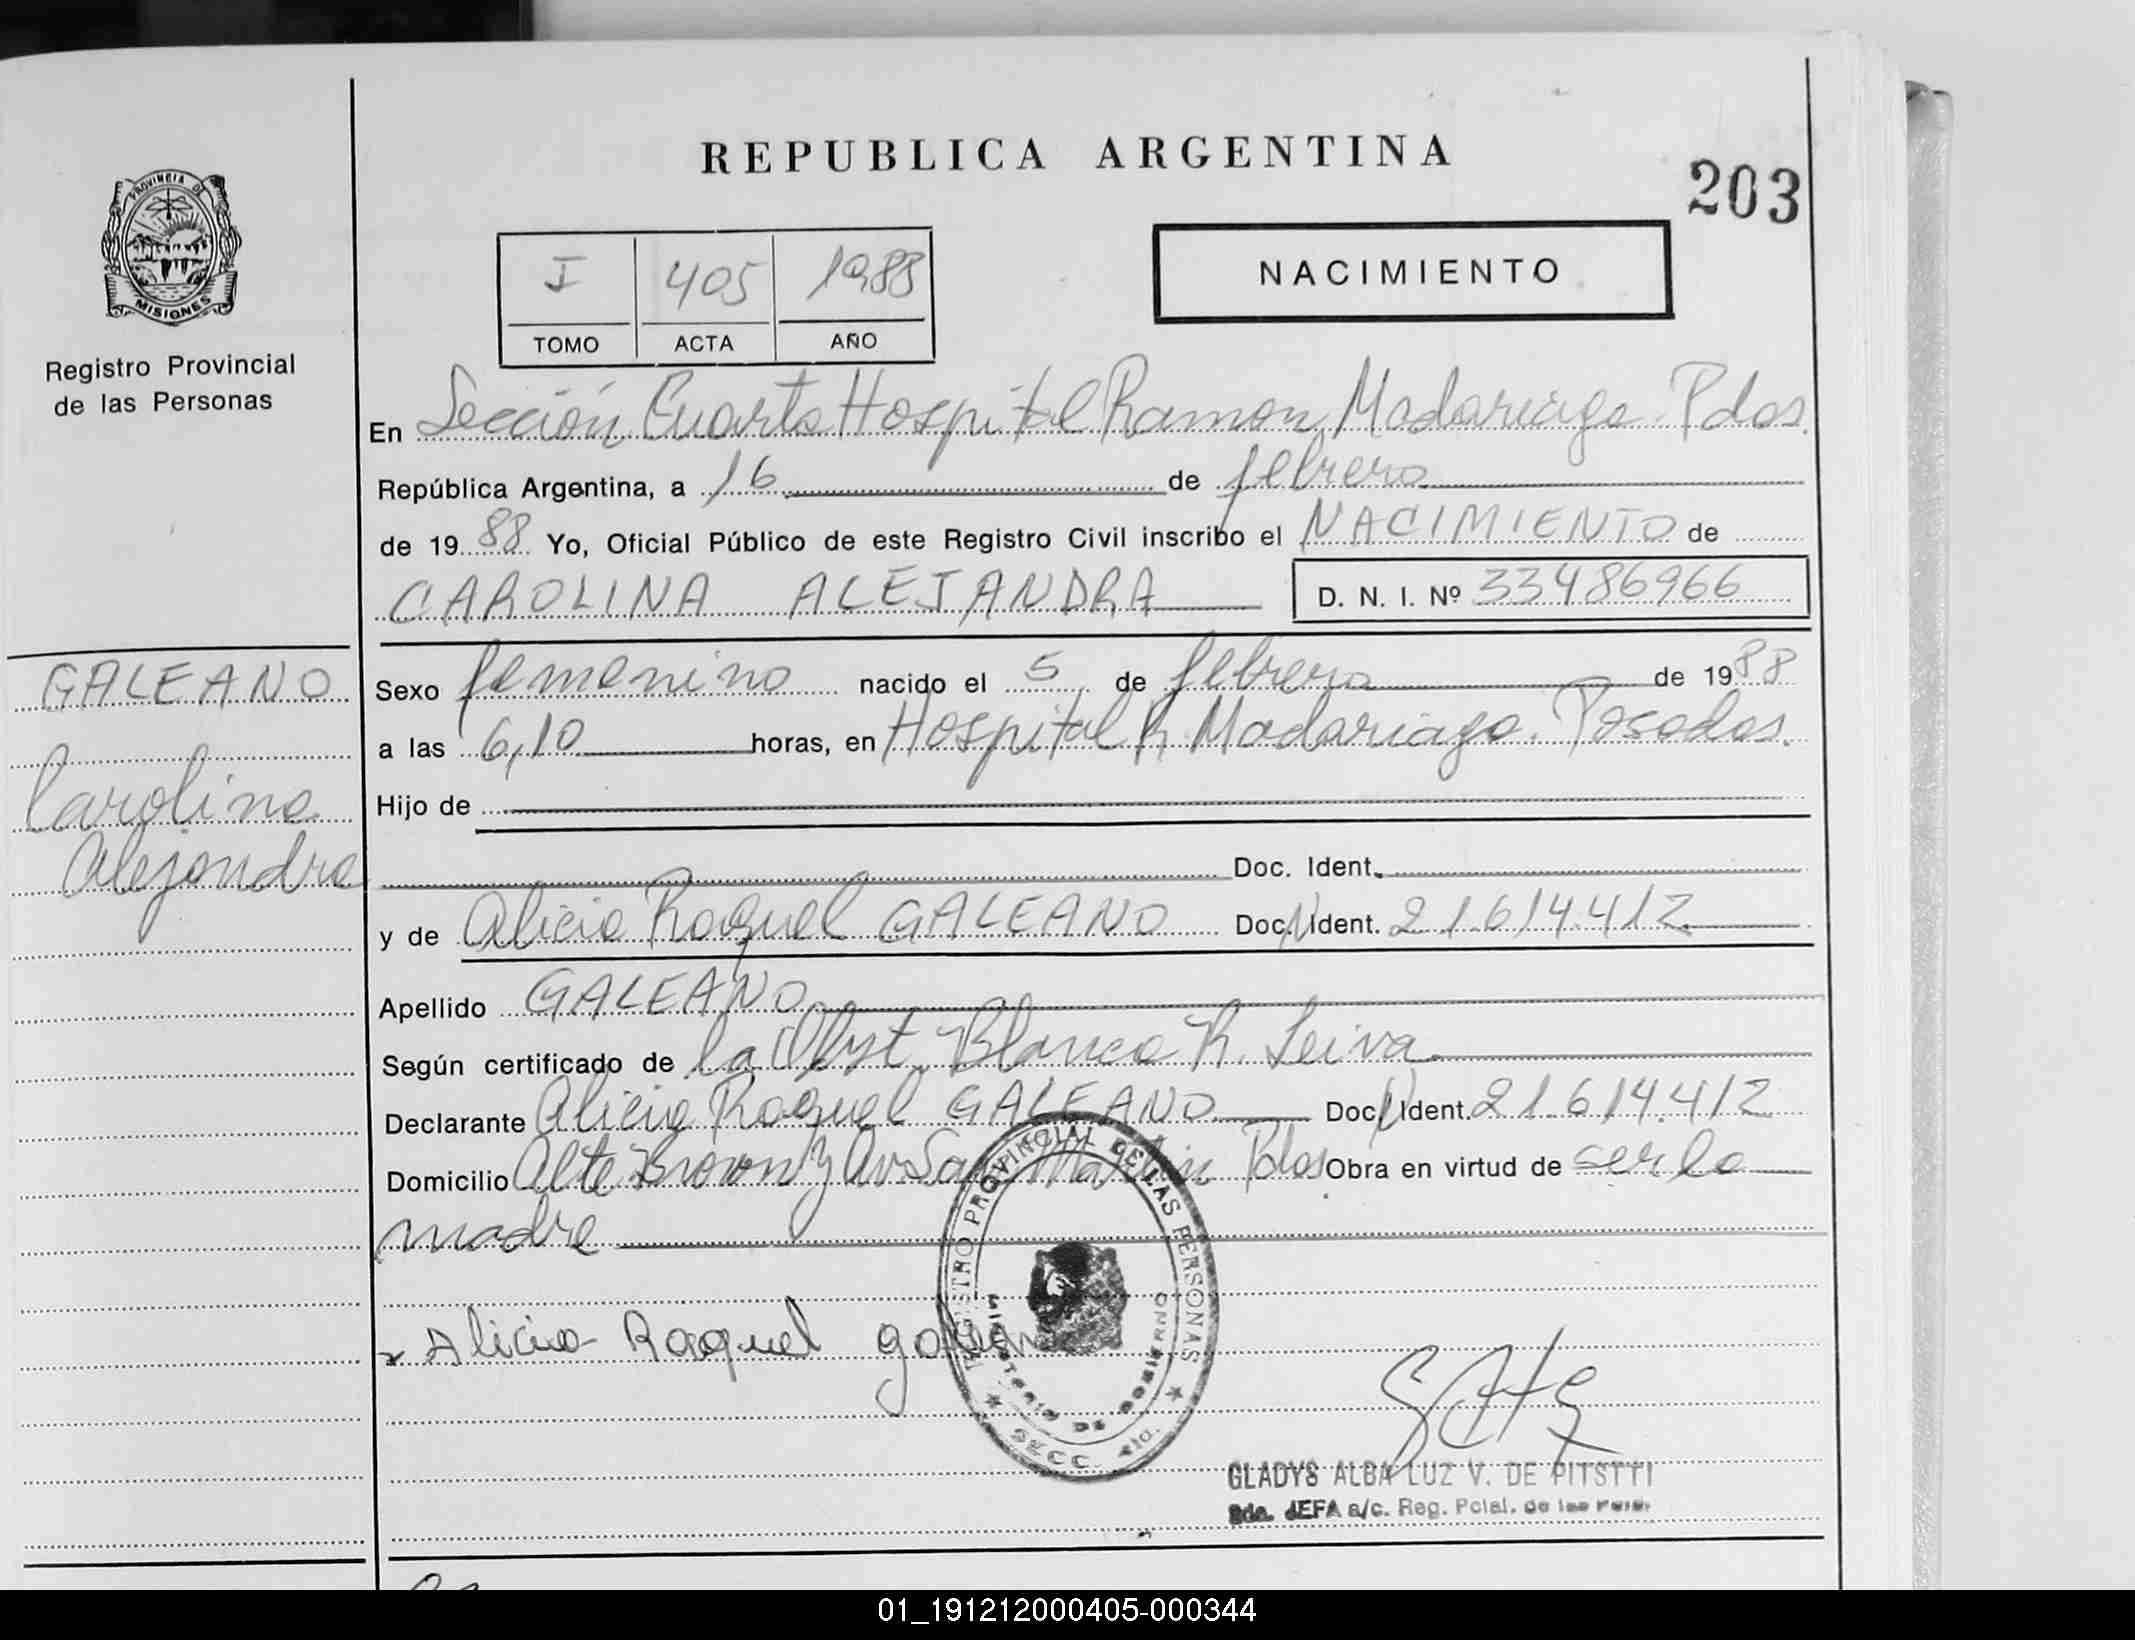 REPUBLICA ARGENTINA
203
PROVINCIA DE
MISIONES
Registro Provincial
de las Personas
I 405 1988
TOMO ACTA AÑO
NACIMIENTO
En Sección Cuarta Hospital Ramon Madariaga. Pdas.
República Argentina, a 16 de febrero
de 1988 Yo, Oficial Público de este Registro Civil inscribo el NACIMIENTO de
CAROLINA ALEJANDRA D. N. I. Nº 33486966
GALEANO
Carolina
Alejandra
Sexo femenino nacido el 5 de febrero de 1988
a las 6,10 horas, en Hospital R. Madariaga. Posadas.
Hijo de
Doc. Ident.
y de Alicia Raquel GALEANO Doc. Ident. 21.614.412
Apellido GALEANO
Según certificado de la Obst. Blanca R. Leiva
Declarante Alicia Raquel GALEANO Doc. Ident. 21.614.412
Domicilio Alte Brown y Av San Martin Pdas Obra en virtud de ser la
madre
Alicia Raquel galeano
REGISTRO PROVINCIAL DE LAS PERSONAS
MINISTERIO DE GOBIERNO
SECC. 4ta.
GLADYS ALBA LUZ V. DE PITSTTI
2da. JEFA a/c. Reg. Pcial. de las Pers.
01_191212000405-000344